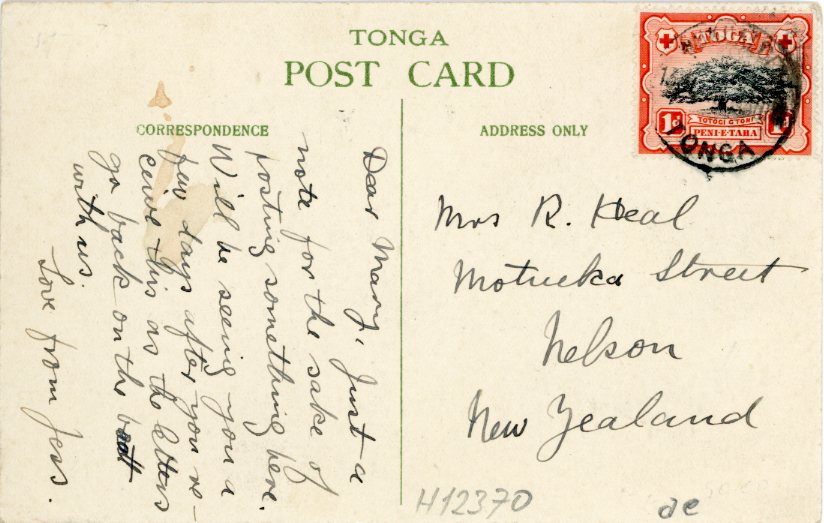 TONGA
POST CARD
CORRESPONDENCE
ADDRESS ONLY
Dear Mary, Just a
note for the sake of
posting something here.
Will be seeing you a
few days after you re-
ceive this as the letters
go back on the boat
with us.
Love from Jess.
1d
1d
PENI-E-TAHA
TONGA
Mrs R. Heal
Motueka Street
Nelson
New Zealand
H12370